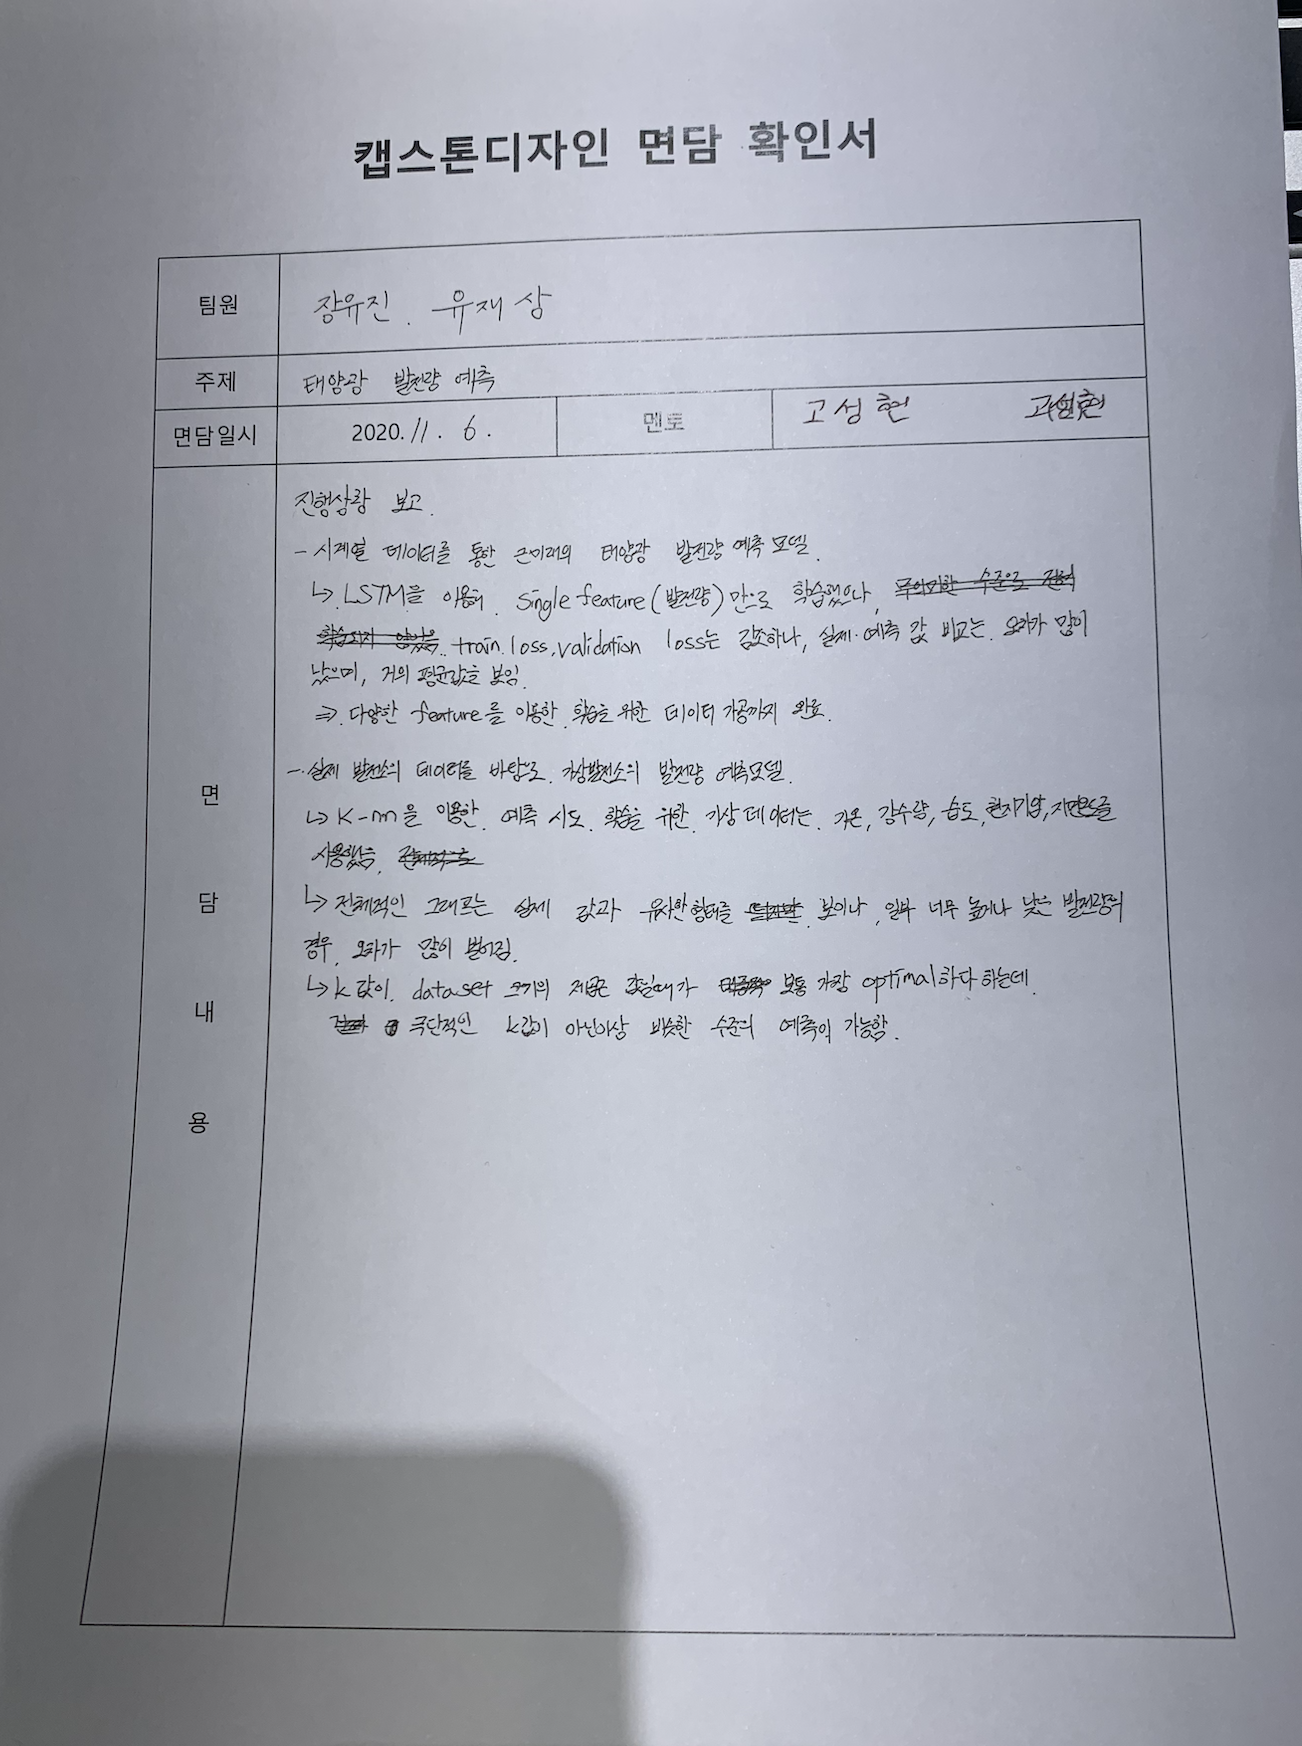 캡스톤디자인 면담 확인서
팀원 장유진. 유재상
주제 태양광 발전량 예측
면담일시 2020. 11. 6. 멘토 고성현 고성현
진행상황 보고.
- 시계열 데이터를 통한 근미래의 태양광 발전량 예측 모델.
↳ LSTM을 이용해 single feature(발전량)만으로 학습했으나,
train loss, validation loss는 감소하나, 실제·예측 값 비교는 오차가 많이
났으며, 거의 평균값을 보임.
⇒ 다양한 feature를 이용한 학습을 위한 데이터 가공까지 완료.
- 실제 발전소의 데이터를 바탕으로 가상발전소의 발전량 예측모델.
↳ K-nn을 이용한 예측 시도. 학습을 위한 기상 데이터는 기온, 강수량, 습도, 현지기압, 지면온도를
사용했음.
↳ 전체적인 그래프는 실제 값과 유사한 형태를 보이나, 일부 너무 높거나 낮은 발전량의
경우, 오차가 많이 벌어짐.
↳ k 값이 dataset 크기의 제곱근 값일때가 보통 가장 optimal하다 하는데
극단적인 k값이 아닌이상 비슷한 수준의 예측이 가능함.
면
담
내
용